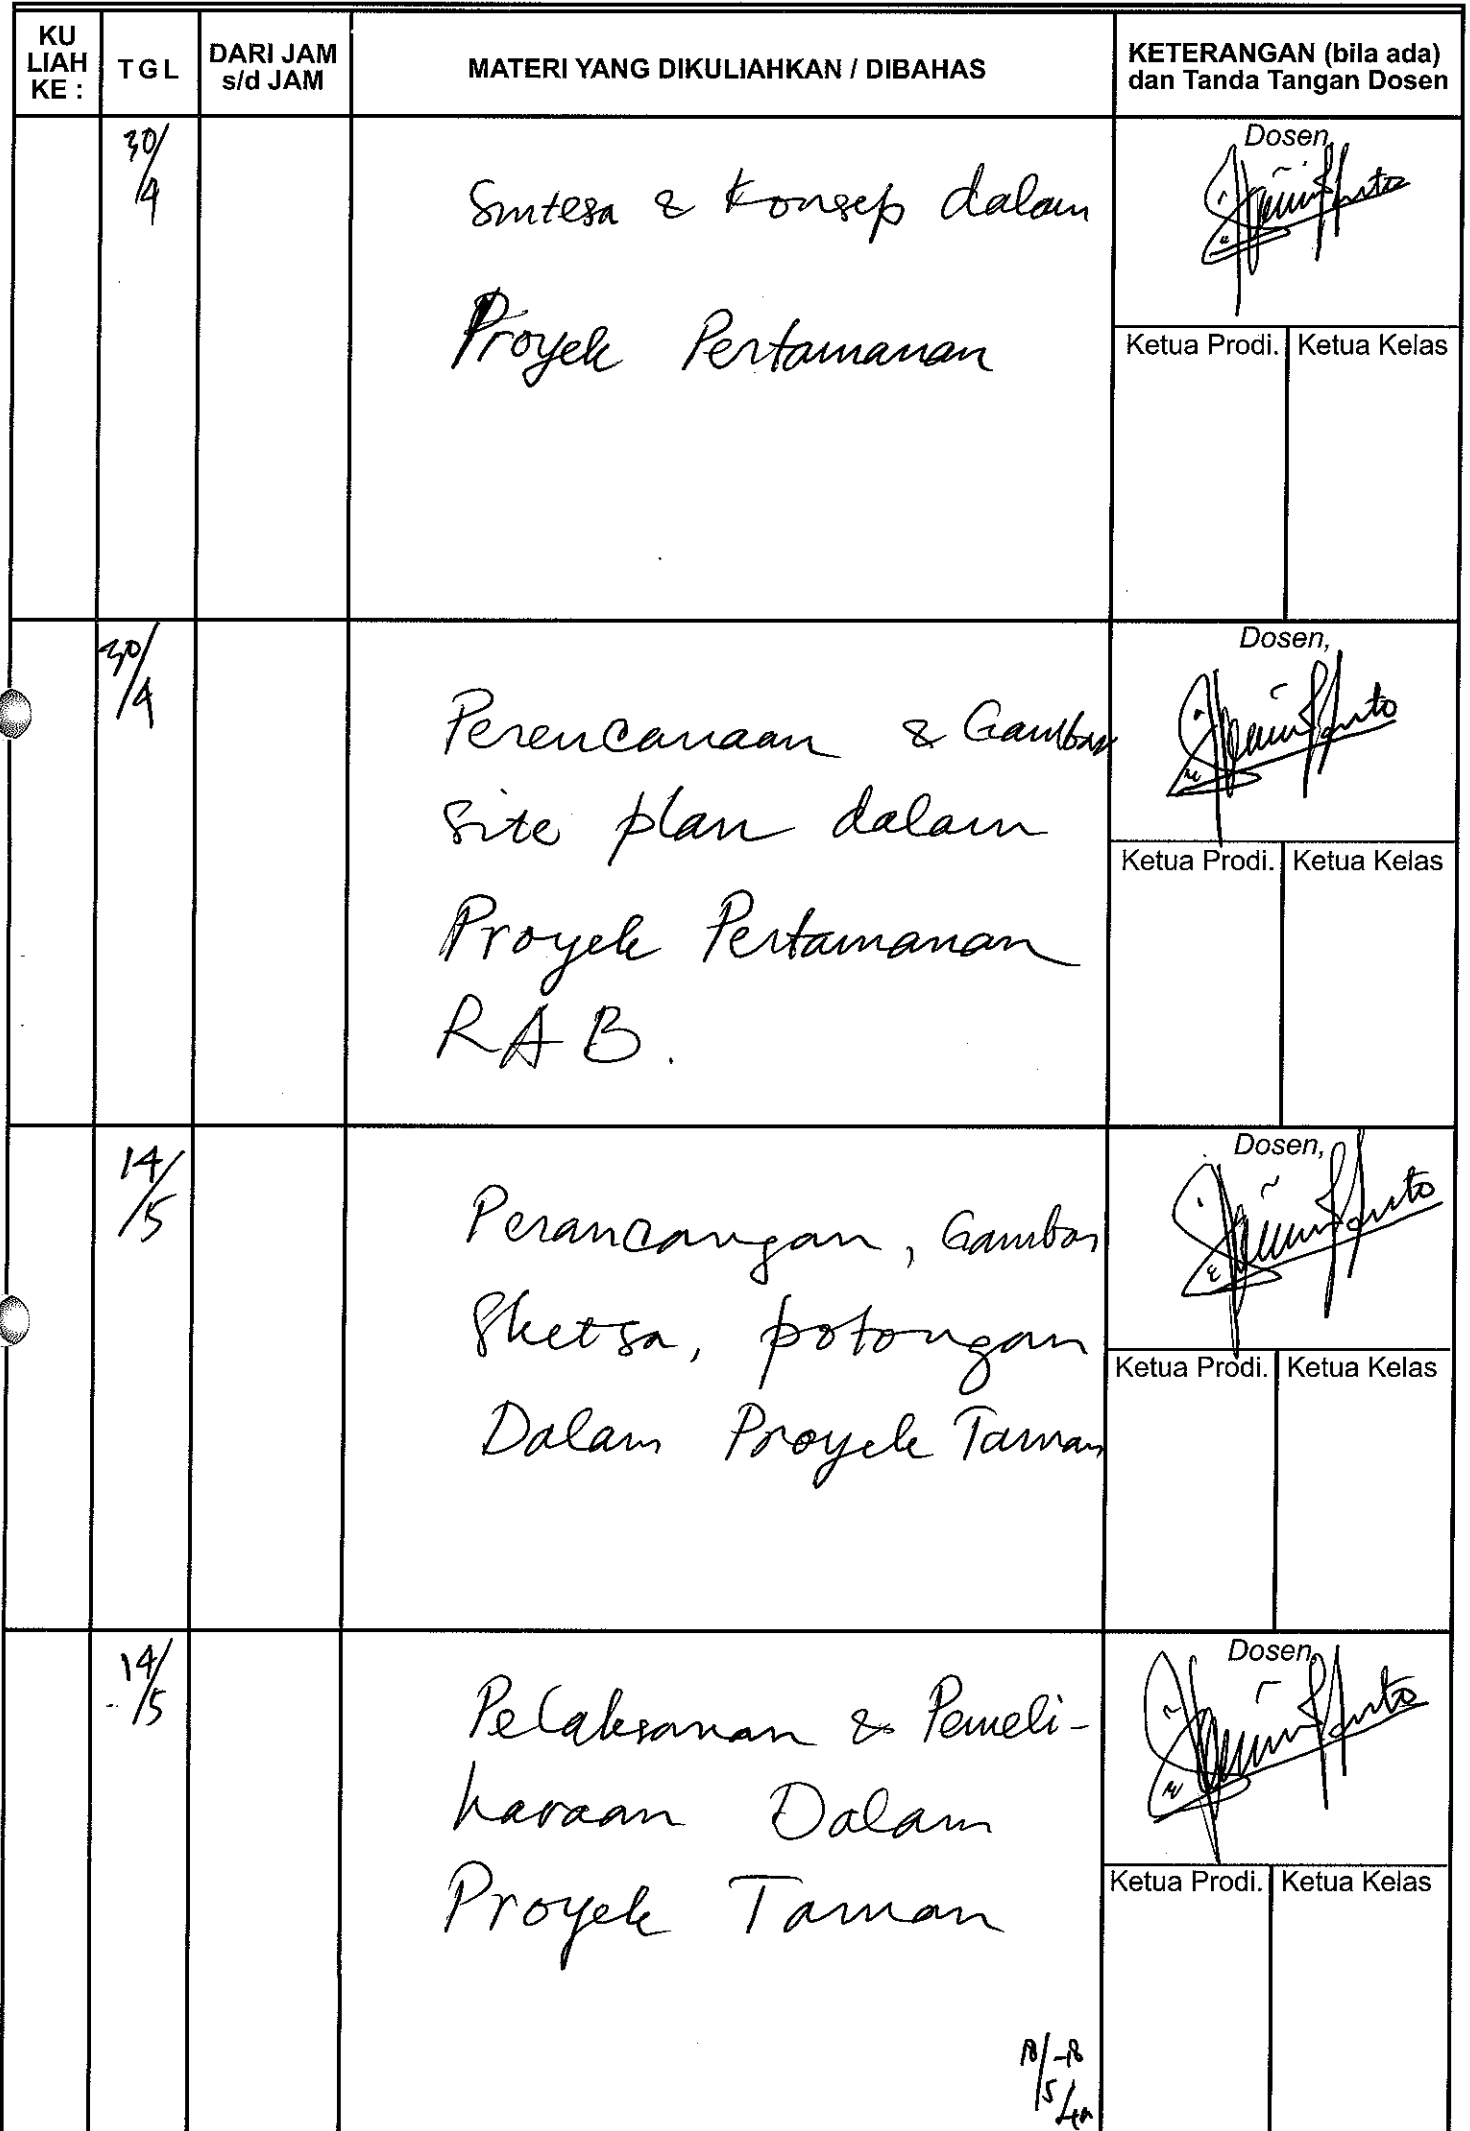 KU
LIAH
KE :
TGL
DARI JAM
s/d JAM
MATERI YANG DIKULIAHKAN / DIBAHAS
KETERANGAN (bila ada)
dan Tanda Tangan Dosen
30/4
Sintesa & Konsep dalam
Proyek Pertamanan
Dosen,
Ketua Prodi. Ketua Kelas
30/4
Perencanaan & Gambar
site plan dalam
Proyek Pertamanan
RAB.
Dosen,
Ketua Prodi. Ketua Kelas
14/5
Perancangan, Gambar
Sketsa, potongan
Dalam Proyek Taman
Dosen,
Ketua Prodi. Ketua Kelas
14/5
Pelaksanan & Pemeli-
haraan Dalam
Proyek Taman
Dosen,
Ketua Prodi. Ketua Kelas